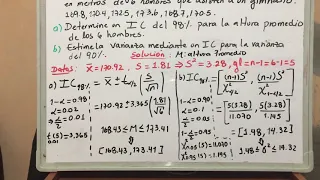 en metros de 6 hombres que asisten a un gimnasio
169.8, 170.4, 172.5, 173.6, 168.7, 170.5.
a) Determine en IC del 98% para la altura promedio
de los 6 hombres.
b) Estime la varianza mediante un IC para la varianza
del 90%. Solución M: altura Promedio
Datos: x̄ = 170.92, S = 1.81 ⇒ S² = 3.28, gl = n-1 = 6-1 = 5
a) IC98% = x̄ ± t α/2 [S/√n]
1-α = 0.98
α = 0.02
⇒ α/2 = 0.01
t0.01(5) = 3.365
170.92 ± 3.365 (1.81/√6)
168.43 ≤ M ≤ 173.41
[168.43, 173.41]
b) IC90% = [(n-1)S²/X²α/2, (n-1)S²/X²1-α/2]
1-α = 0.90
α = 0.10
α/2 = 0.05
1-α/2 = 0.95
X²0.05(5) = 11.070
X²0.95(5) = 1.145
= [5(3.28)/11.070, 5(3.28)/1.145]
= [1.48, 14.32]
1.48 ≤ σ² ≤ 14.32